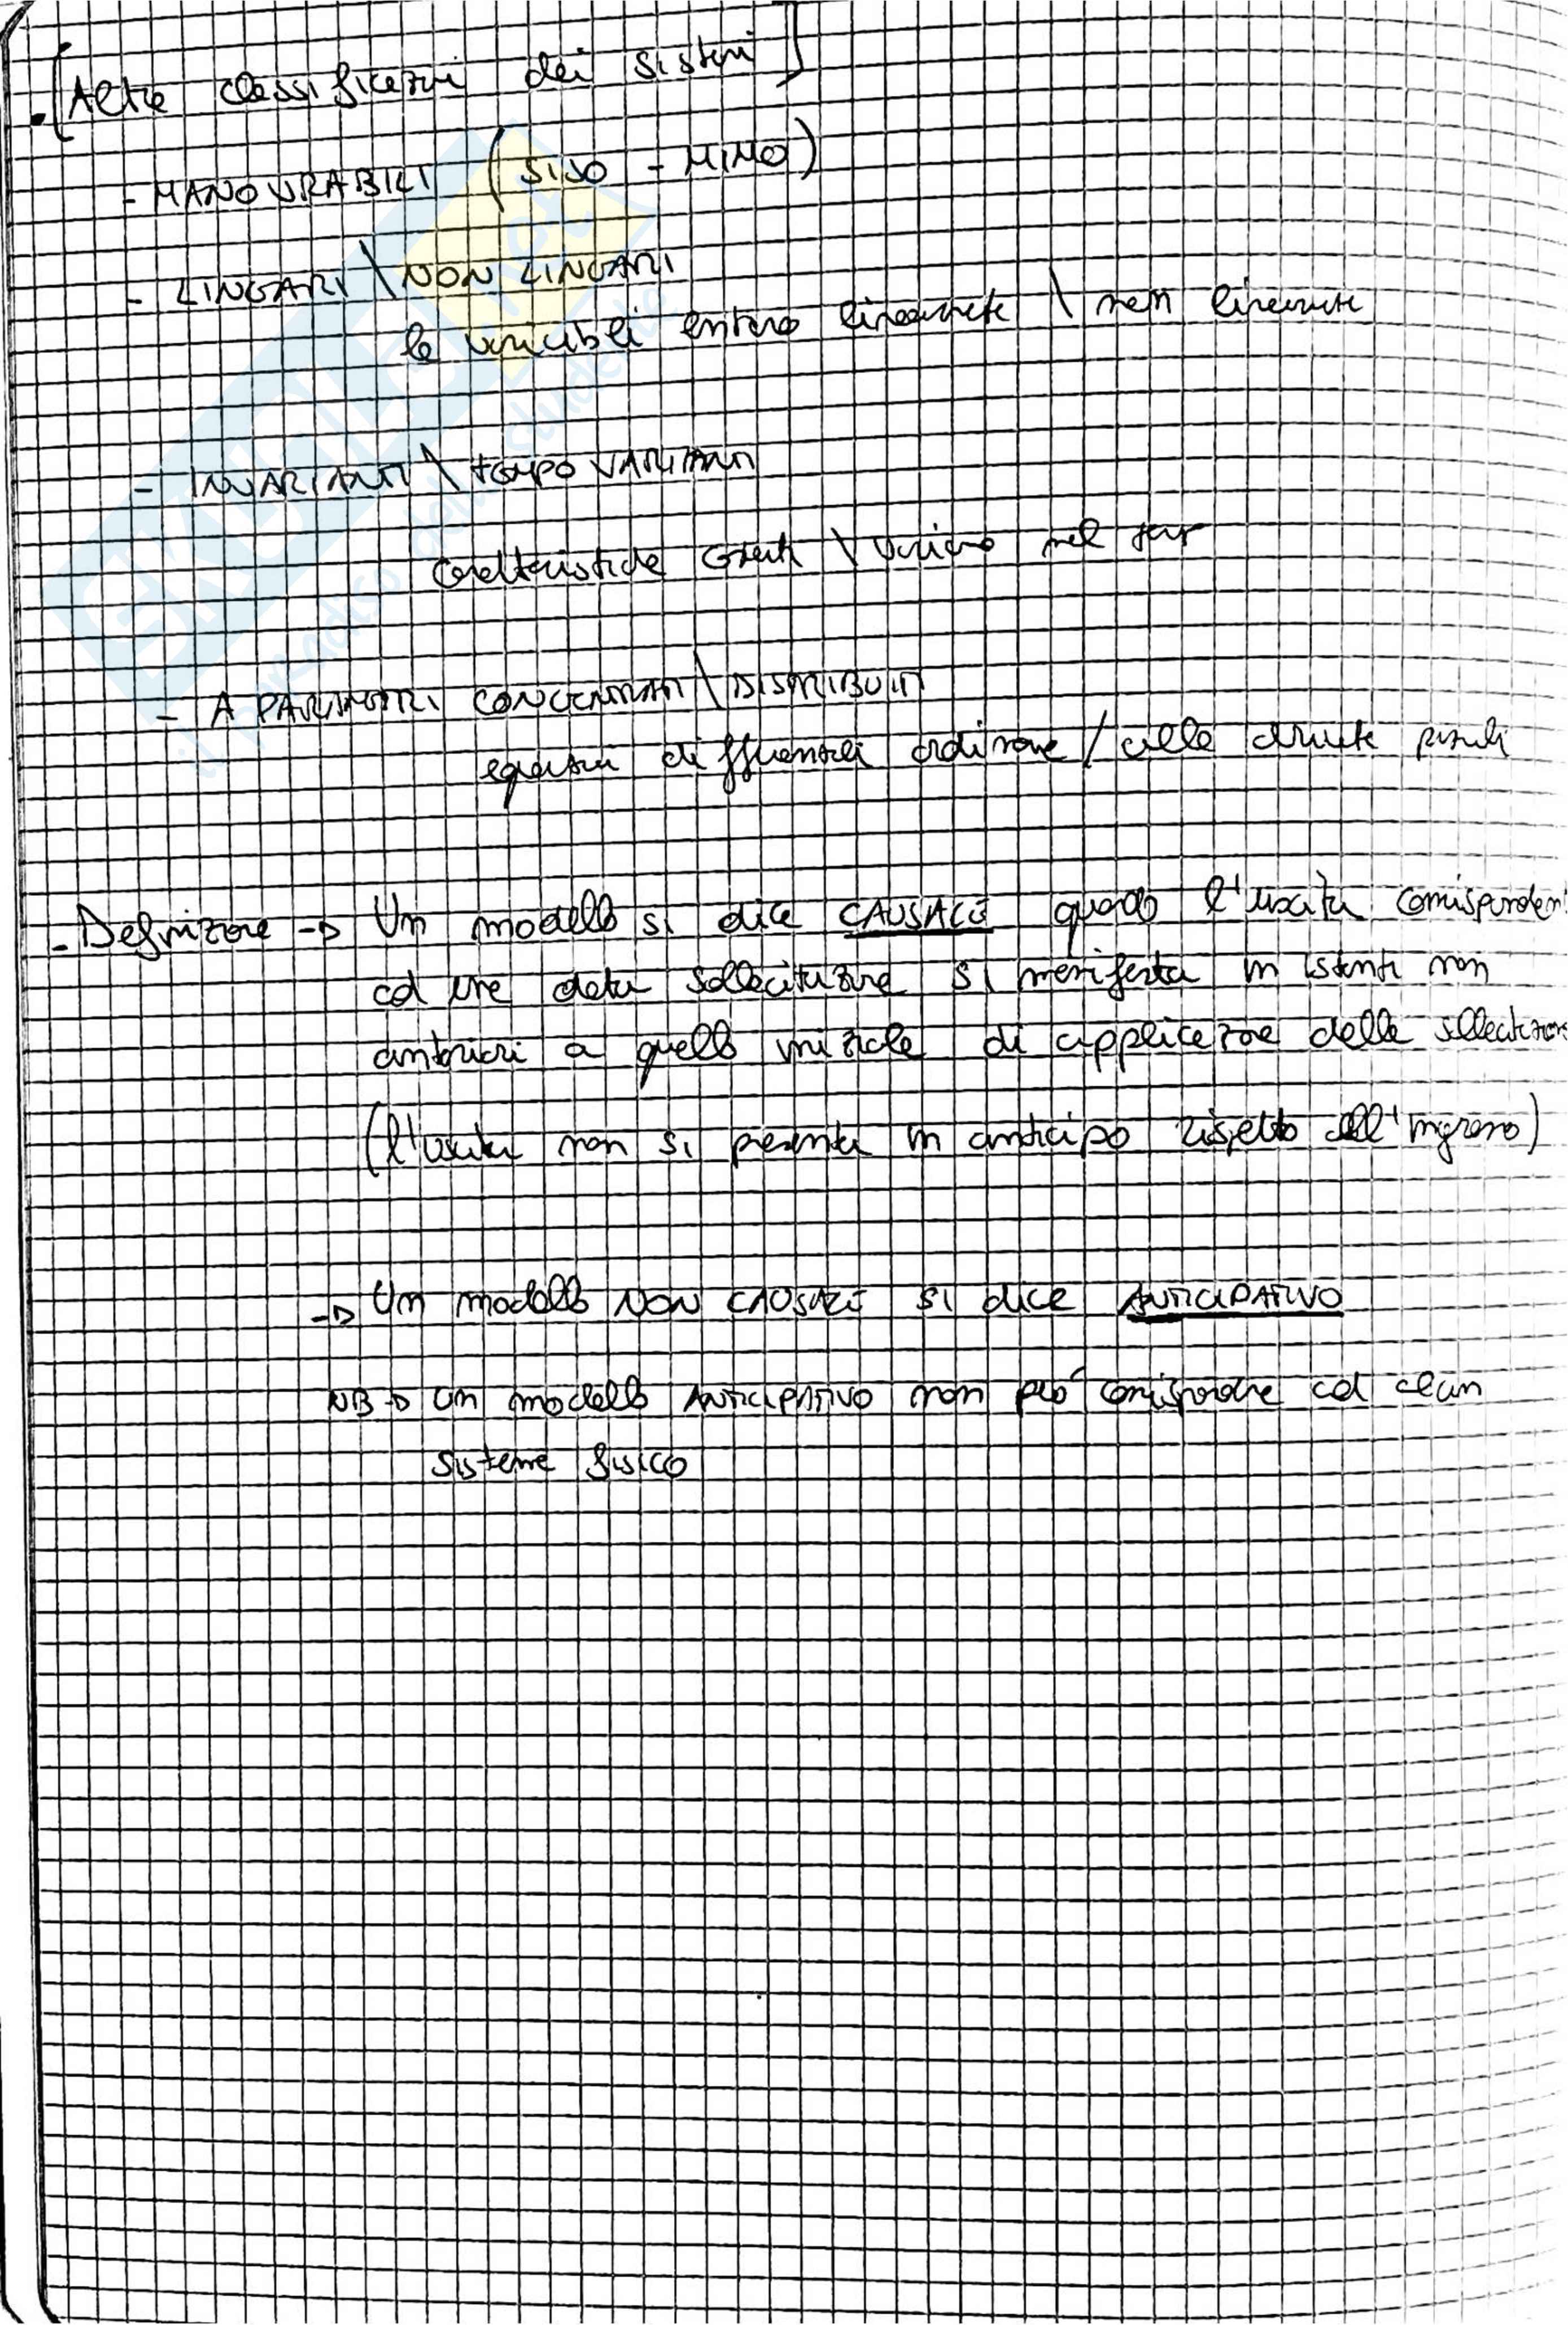 [Altre classificazioni dei sistemi]
- MANOVRABILI (SISO - MIMO)
- LINEARI \ NON LINEARI
le variabili entrano linearmente \ non linearmente
- INVARIANTI \ TEMPO VARIANTI
caratteristiche costanti \ variano nel tempo
- A PARAMETRI CONCENTRATI \ DISTRIBUITI
equazioni differenziali ordinarie / alle derivate parziali
- Definizione -> Un modello si dice CAUSALE quando l'uscita corrispondente
ad una data sollecitazione si manifesta in istanti non
anteriori a quello iniziale di applicazione della sollecitazione
(l'uscita non si presenta in anticipo rispetto all'ingresso)
-> Un modello NON CAUSALE si dice ANTICIPATIVO
NB -> Un modello ANTICIPATIVO non può corrispondere ad alcun
sistema fisico
SKUOLA.net
il paradiso dello studente